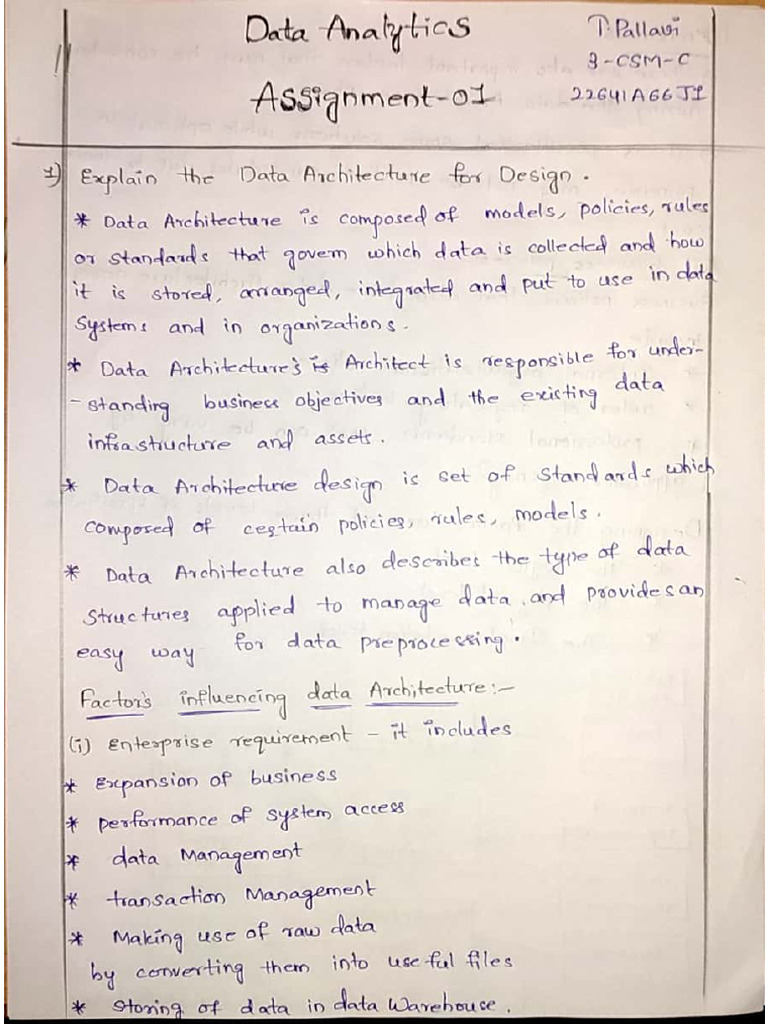 Data Analytics
Assignment-01
T. Pallavi
3-CSM-C
22641A66J1
1) Explain the Data Architecture for Design.
* Data Architecture is composed of models, policies, rules
or standards that govern which data is collected and how
it is stored, arranged, integrated and put to use in data
Systems and in organizations.
* Data Architecture's is Architect is responsible for under-
-standing business objectives and the existing data
infrastructure and assets.
* Data Architecture design is set of standards which
composed of certain policies, rules, models.
* Data Architecture also describes the type of data
structures applied to manage data and provides an
easy way for data preprocessing.
Factor's influencing data Architecture:-
(i) Enterprise requirement - it includes
* Expansion of business
* performance of system access
* data Management
* transaction Management
* Making use of raw data
by converting them into useful files
* Storing of data in data Warehouse.